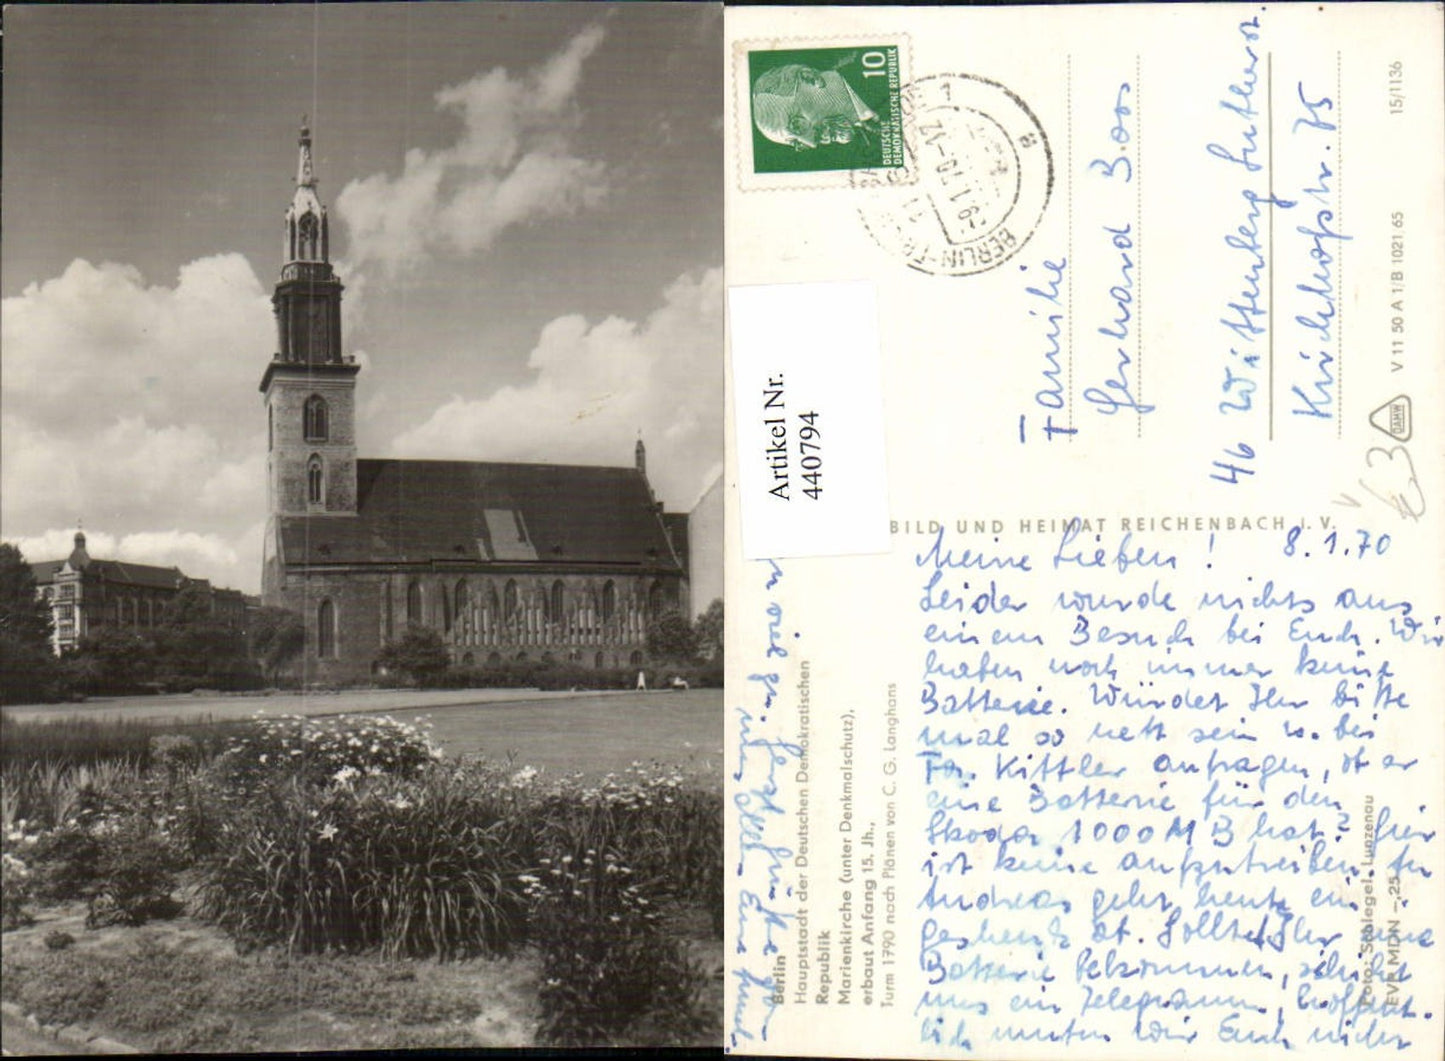 10
DEUTSCHE
DEMOKRATISCHE REPUBLIK
BERLIN
Familie
Gerhard Boos
46 Wittenberg Lutherst.
Kirchhofstr. 75
15/1136
V 11 50 A 1/B 1021 65
DAMW
Artikel Nr.
440794
BILD UND HEIMAT REICHENBACH i. V.
8.1.70
Meine Lieben!
Leider wurde nichts aus
einem Besuch bei Euch. Wir
haben noch immer keine
Batterie. Würdet Ihr bitte
mal so nett sein u. bei
Fa. Kittler anfragen, ob er
eine Batterie für den
Skoda 1000 MB hat? Hier
ist keine aufzutreiben. An
Andreas geht heute ein
Geschenk ab. Solltet Ihr eine
Batterie bekommen, schickt
uns ein Telegramm, hoffent-
lich muten wir Euch nicht
zu viel zu. Herzl. Grüße
von allen Eure
Berlin
Hauptstadt der Deutschen Demokratischen
Republik
Marienkirche (unter Denkmalschutz),
erbaut Anfang 15. Jh.,
Turm 1790 nach Plänen von C. G. Langhans
Foto: Schlegel, Lunzenau
EVP MDN -,25